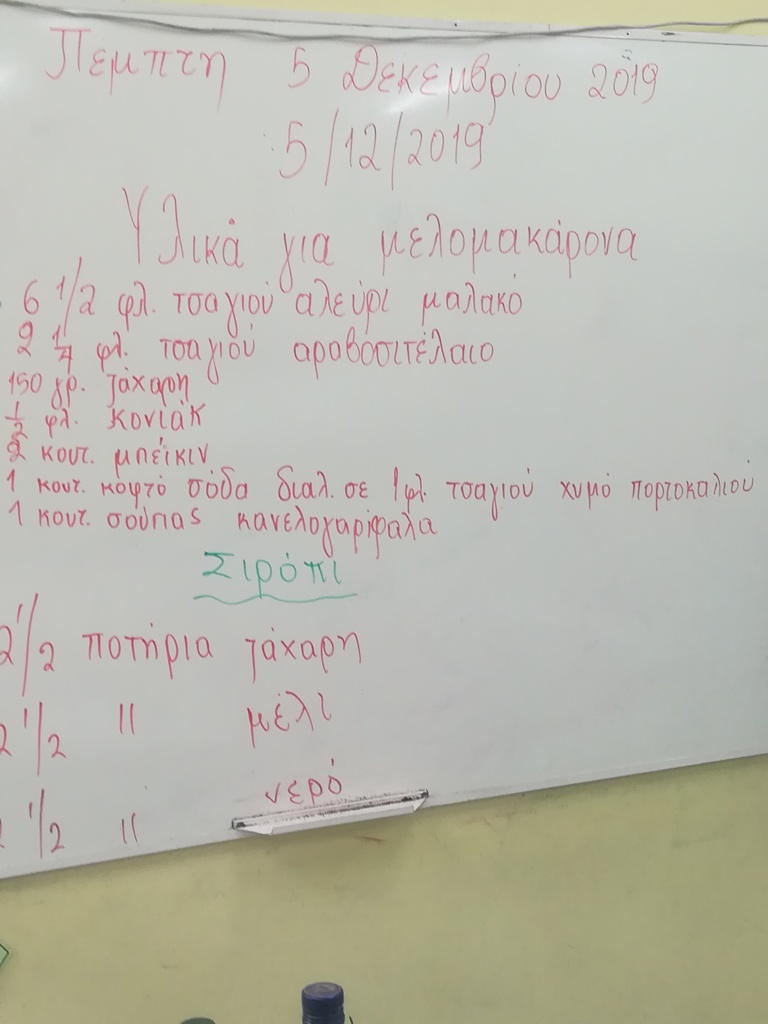 Πέμπτη 5 Δεκεμβρίου 2019
5/12/2019
Υλικά για μελομακάρονα
6 1/2 φλ. τσαγιού αλεύρι μαλακό
2 1/4 φλ. τσαγιού αραβοσιτέλαιο
150 γρ. ζάχαρη
1/2 φλ. κονιάκ
2 κουτ. μπέικιν
1 κουτ. κοφτό σόδα διαλ. σε 1 φλ. τσαγιού χυμό πορτοκαλιού
1 κουτ. σούπας κανελογαρίφαλα
Σιρόπι
2 1/2 ποτήρια ζάχαρη
2 1/2 〃 μέλι
2 1/2 〃 νερό